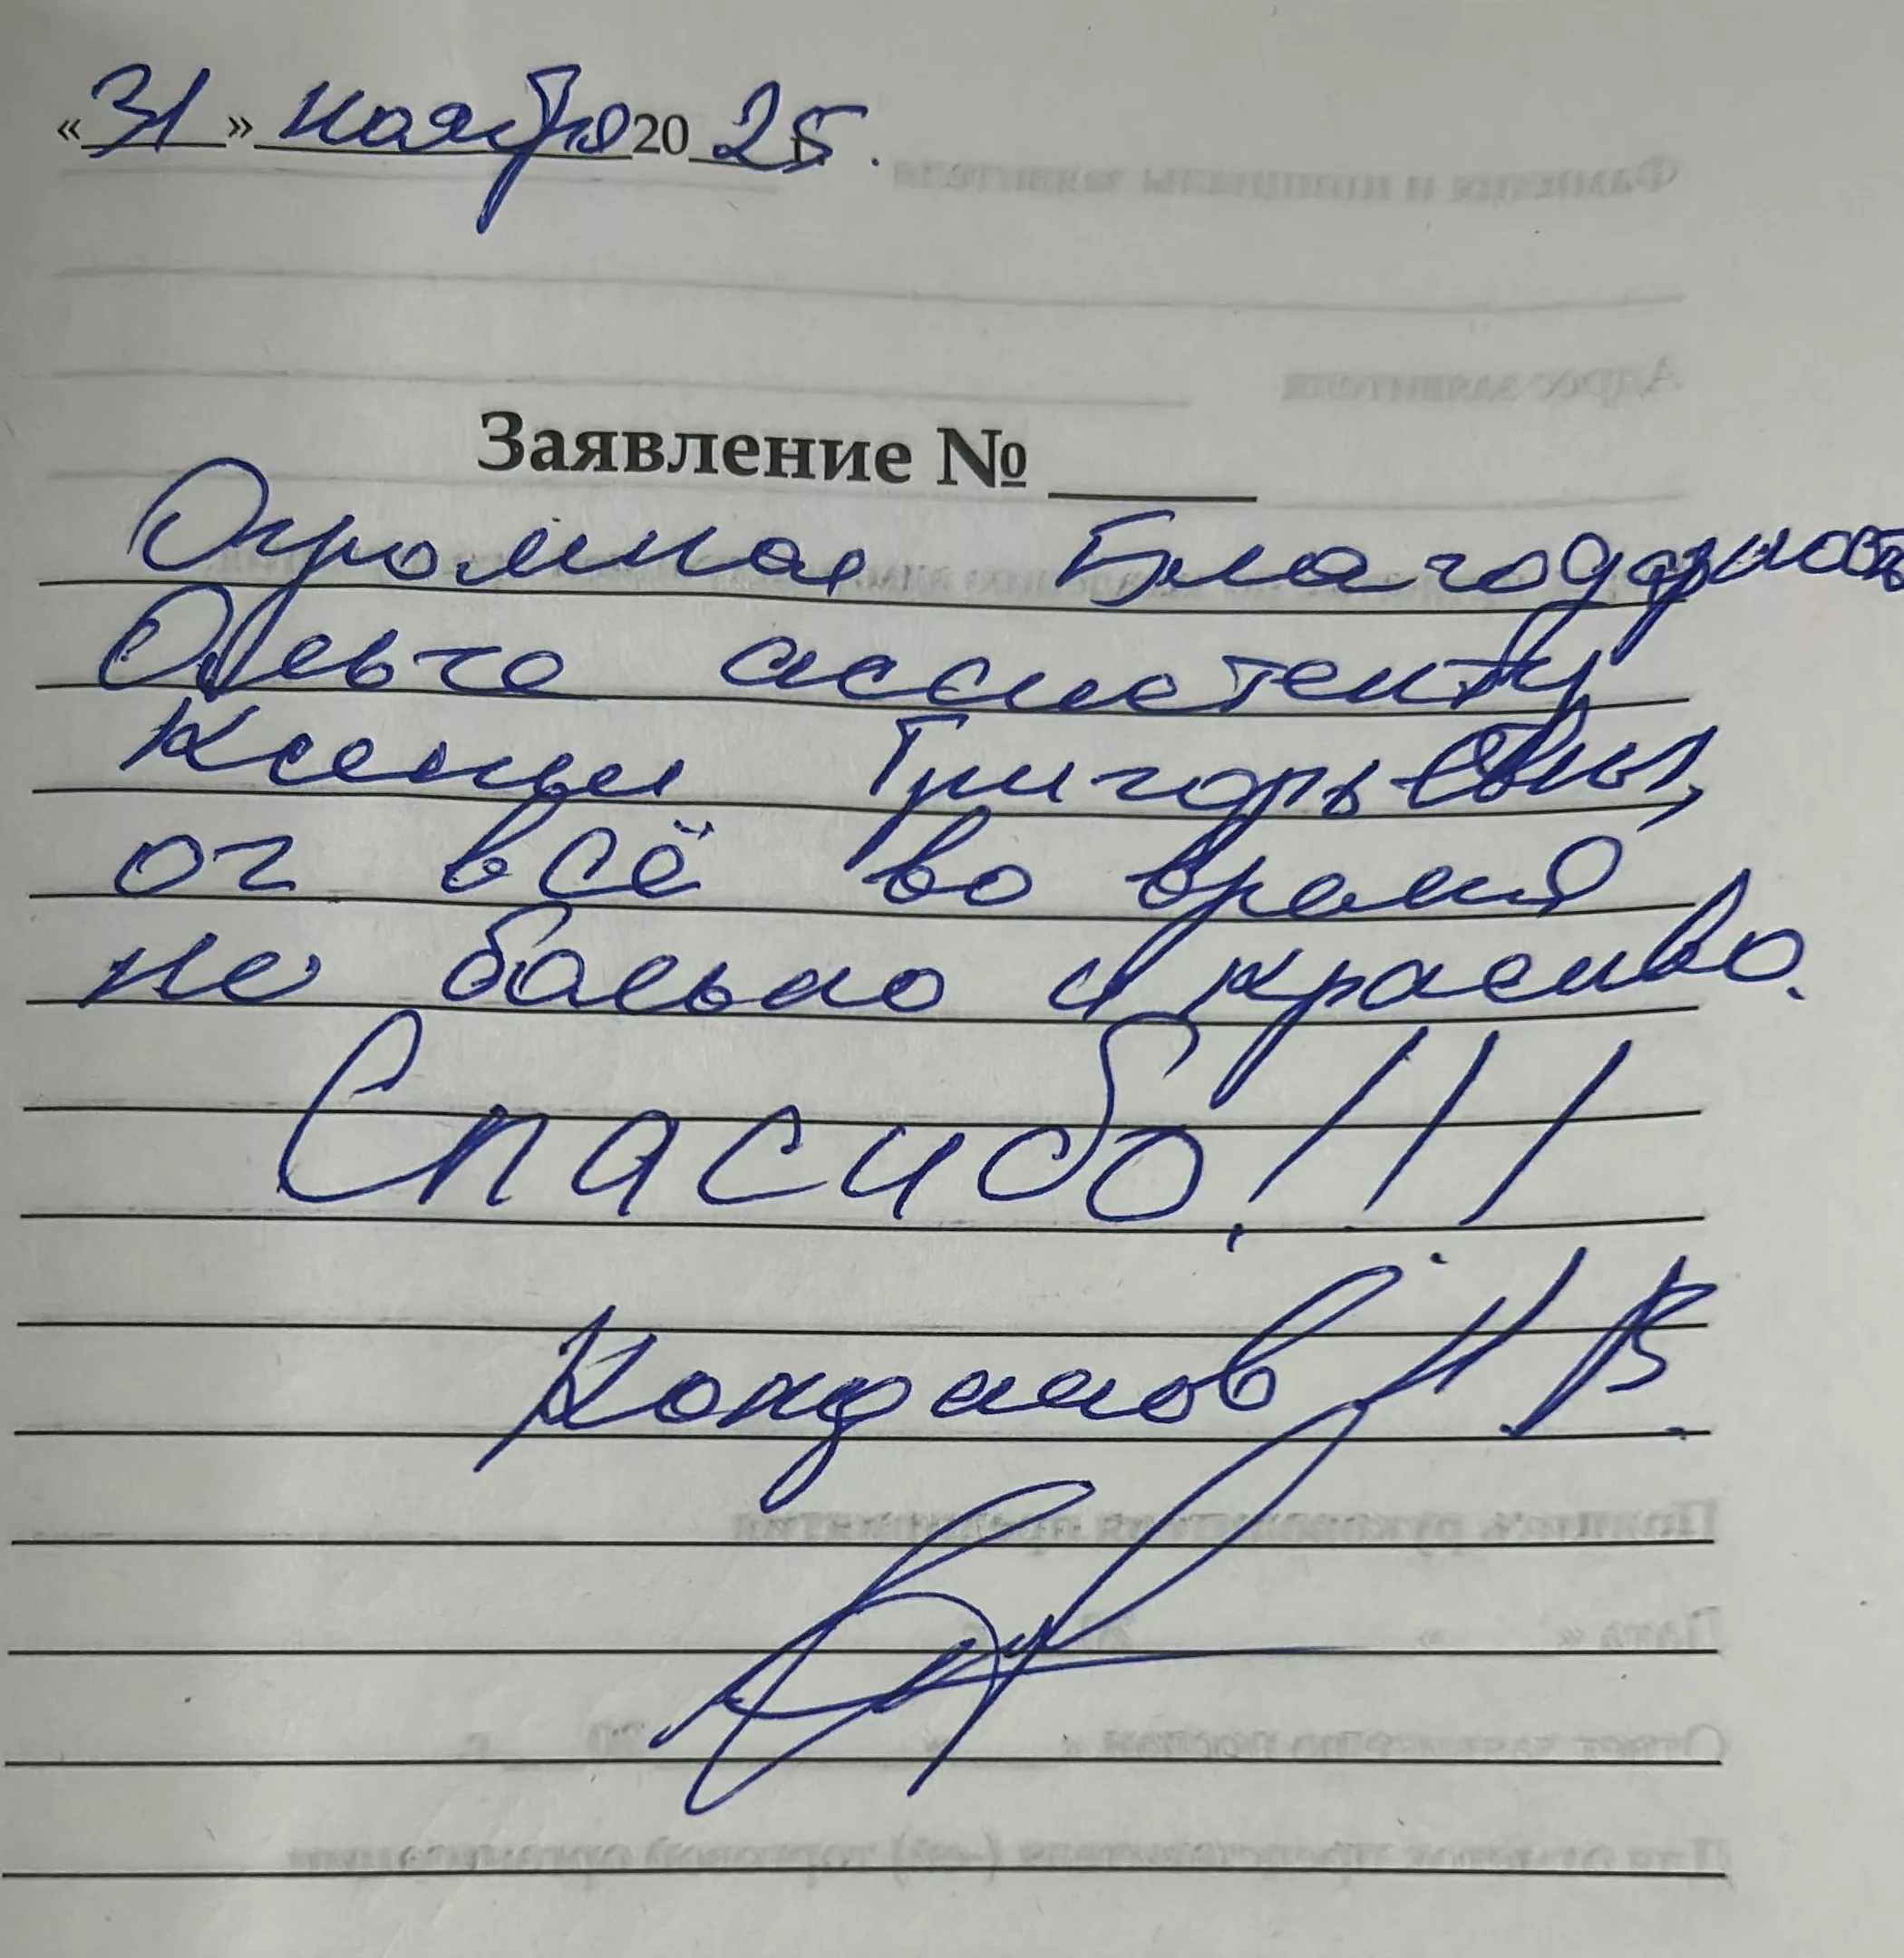 «31» ноября 2025.
Заявление №
Огромная Благодарность
Ольге ассистенту
Ксеньи Григорьевны,
ог всё во время
не больно и красиво.
Спасибо!!!
И.В.